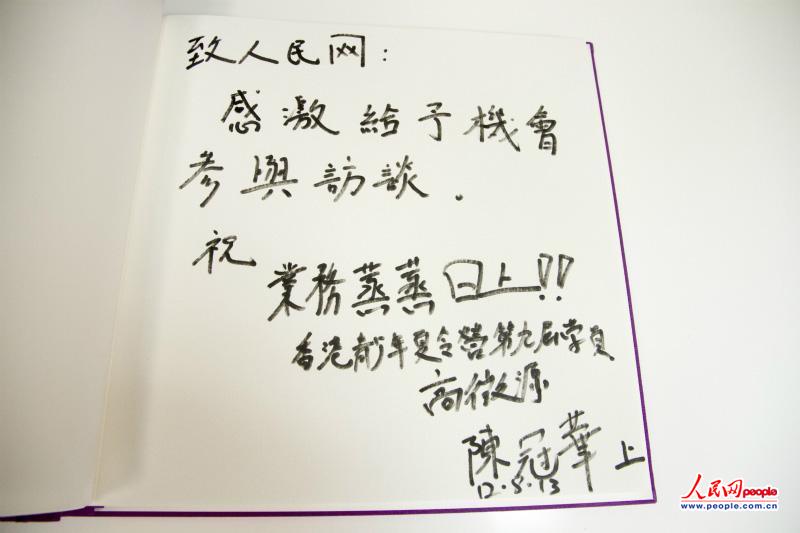 致人民网：
感激給予機會
參與訪談．
祝
業務蒸蒸日上!!
香港青少年夏令營第九屆学員
高微源
陳冠華上
12.8.13
人民网people
www.people.com.cn